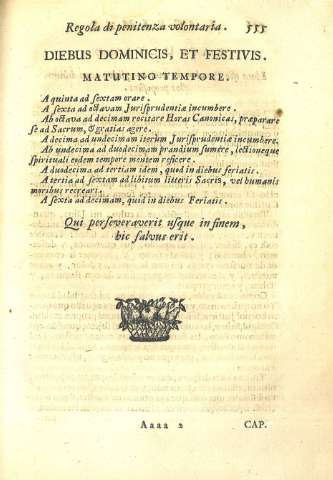 Regola di penitenza volontaria. 555
DIEBUS DOMINICIS, ET FESTIVIS.
MATUTINO TEMPORE.
A quinta ad sextam orare.
A sexta ad octavam Jurisprudentiæ incumbere.
Ab octava ad decimam recitare Horas Canonicas, præparare
se ad Sacrum, & gratias agere.
A decima ad undecimam iterum Jurisprudentiæ incumbere.
Ab undecima ad duodecimam prandium sumere, lectioneque
spirituali eodem tempore mentem reficere.
A duodecima ad tertiam idem, quod in diebus feriatis.
A tertia ad sextam ad libitum litteris Sacris, vel humanis
moribus recreari.
A sexta ad decimam, quid in diebus Feriatis.
Qui perseveraverit usque in finem,
hic salvus erit.
Aaaa 2 CAP.